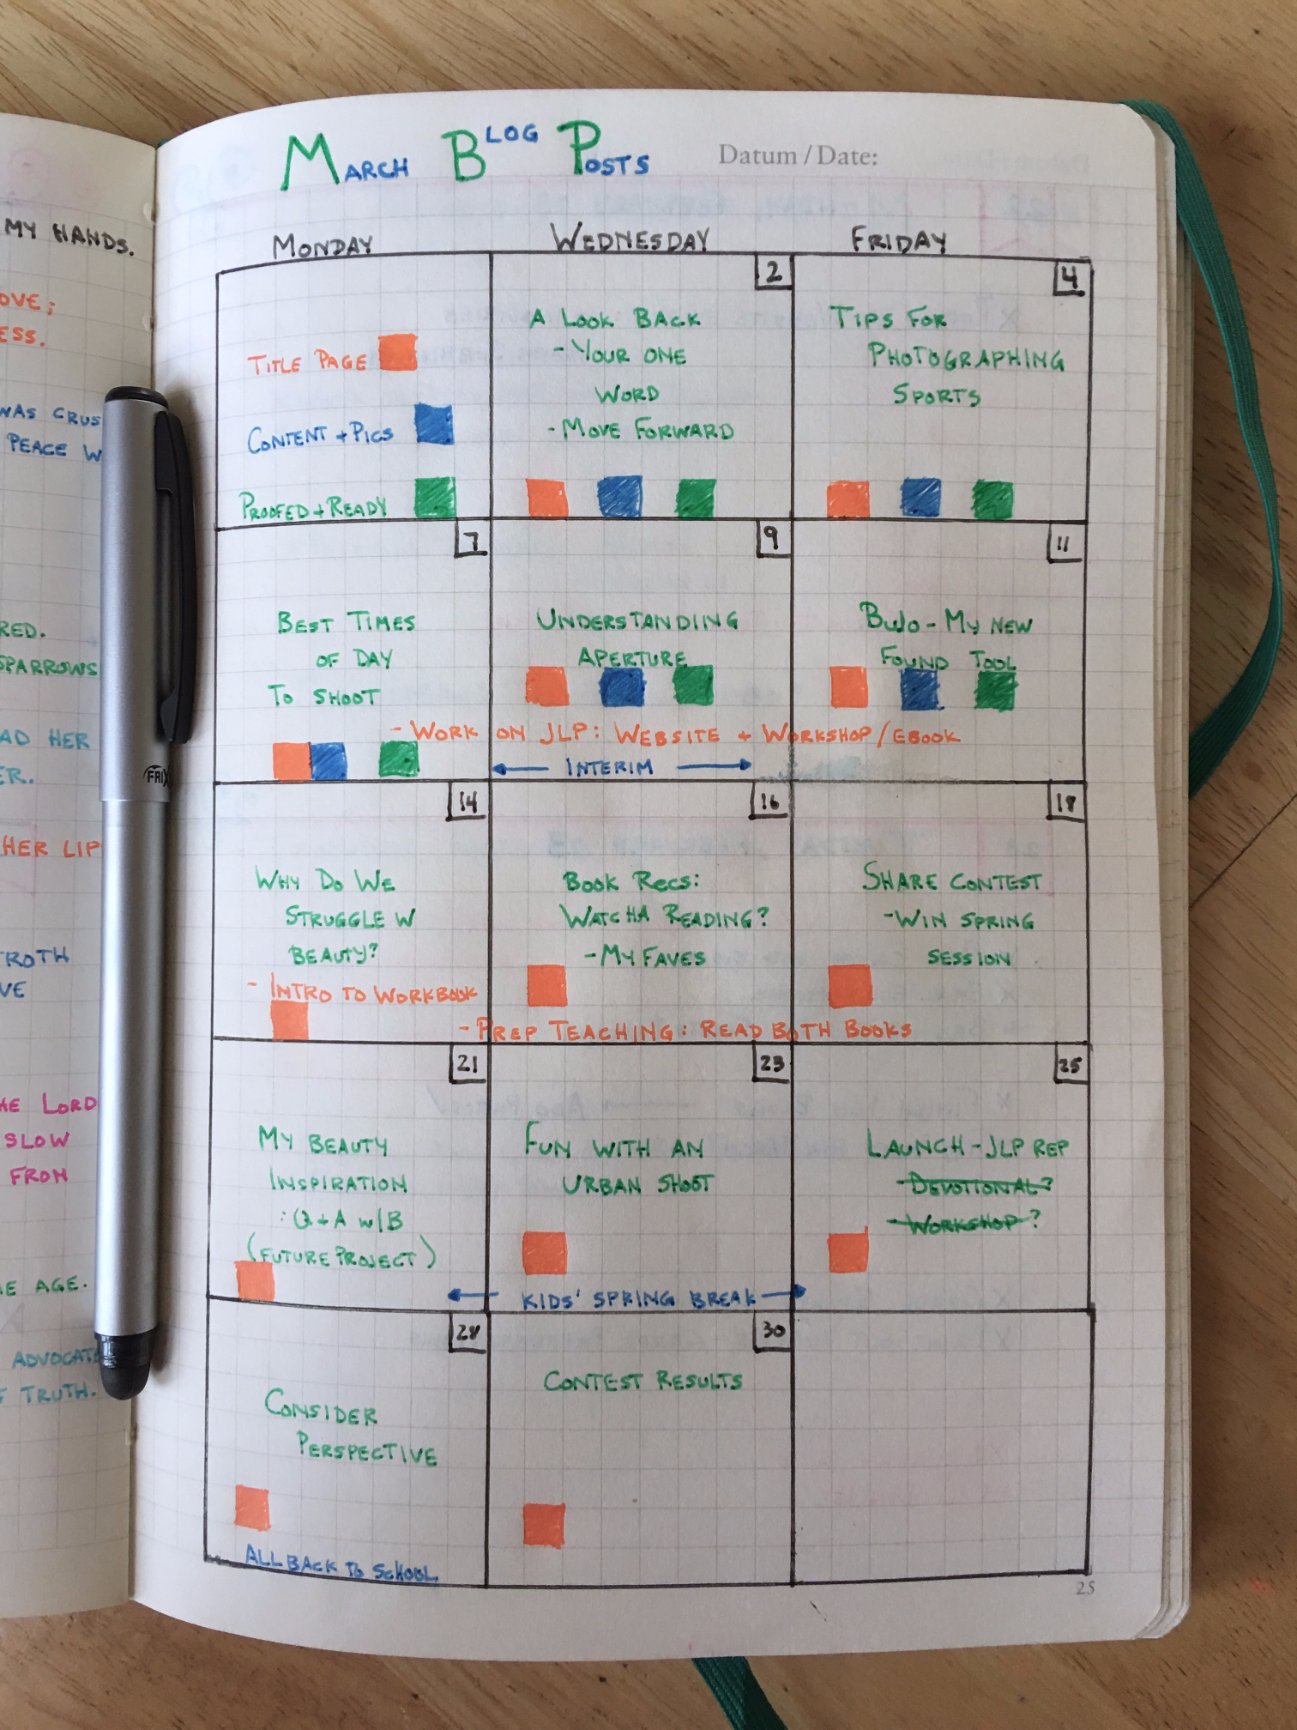 MY HANDS.
OVE;
ESS.
WAS CRUS
PEACE W
RED.
SPARROWS
AD HER
ER.
HER LIP
TROTH
VE
HE LORD
SLOW
FROM
E AGE.
ADVOCATE
F TRUTH.
FRIX
MARCH BLOG POSTS
Datum / Date:
MONDAY WEDNESDAY FRIDAY
TITLE PAGE
CONTENT + PICS
PROOFED + READY
2
A LOOK BACK
- YOUR ONE
WORD
- MOVE FORWARD
4
TIPS FOR
PHOTOGRAPHING
SPORTS
7
BEST TIMES
OF DAY
TO SHOOT
9
UNDERSTANDING
APERTURE
11
BUJO - MY NEW
FOUND TOOL
- WORK ON JLP: WEBSITE + WORKSHOP/EBOOK
INTERIM
14
WHY DO WE
STRUGGLE W
BEAUTY?
- INTRO TO WORKBOOK
16
BOOK RECS:
WATCHA READING?
- MY FAVES
18
SHARE CONTEST
- WIN SPRING
SESSION
- PREP TEACHING: READ BOTH BOOKS
21
MY BEAUTY
INSPIRATION
: Q + A w/B
(FUTURE PROJECT)
23
FUN WITH AN
URBAN SHOOT
25
LAUNCH - JLP REP
- DEVOTIONAL?
- WORKSHOP?
KIDS' SPRING BREAK
28
CONSIDER
PERSPECTIVE
ALL BACK TO SCHOOL
30
CONTEST RESULTS
25